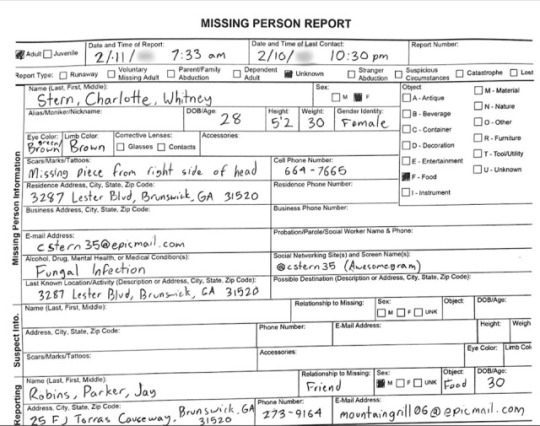 MISSING PERSON REPORT
Adult Juvenile
Date and Time of Report:
2/11/ 7:33 am
Date and Time of Last Contact:
2/10/ 10:30 pm
Report Number:
Report Type: Runaway Voluntary Missing Adult Parent/Family Abduction Dependent Adult Unknown Stranger Abduction Suspicious Circumstances Catastrophe Lost
Missing Person Information
Name (Last, First, Middle):
Stern, Charlotte, Whitney
Sex:
M F
Object
A - Antique
B - Beverage
C - Container
D - Decoration
E - Entertainment
F - Food
I - Instrument
M - Material
N - Nature
O - Other
R - Furniture
T - Tool/Utility
U - Unknown
Alias/Moniker/Nickname:
DOB/Age:
28
Height:
5'2
Weight:
30
Gender Identity:
Female
Eye Color:
green/
Brown
Limb Color:
Brown
Corrective Lenses:
Glasses Contacts
Accessories:
Scars/Marks/Tattoos:
Missing piece from right side of head
Cell Phone Number:
664-7665
Residence Address, City, State, Zip Code:
3287 Lester Blvd, Brunswick, GA 31520
Residence Phone Number:
Business Address, City, State, Zip Code:
Business Phone Number:
E-mail Address:
cstern35@epicmail.com
Probation/Parole/Social Worker Name & Phone:
Alcohol, Drug, Mental Health, or Medical Condition(s):
Fungal Infection
Social Networking Site(s) and Screen Name(s):
@cstern35 (Awesomegram)
Last Known Location/Activity (Description or Address, City, State, Zip Code):
3287 Lester Blvd, Brunswick, GA 31520
Possible Destination (Description or Address, City, State, Zip Code):
Suspect Info.
Name (Last, First, Middle):
Relationship to Missing:
Sex:
M F UNK
Object:
DOB/Age:
Address, City, State, Zip Code:
Phone Number:
E-Mail Address:
Height:
Weigh
Scars/Marks/Tattoos:
Accessories:
Eye Color:
Limb Col
Reporting
Name (Last, First, Middle):
Robins, Parker, Jay
Relationship to Missing:
Friend
Sex:
M F UNK
Object:
Food
DOB/Age:
30
Address, City, State, Zip Code:
25 F J Torras Causeway, Brunswick, GA
31520
Phone Number:
273-9164
E-Mail Address:
mountaingrill06@epicmail.com